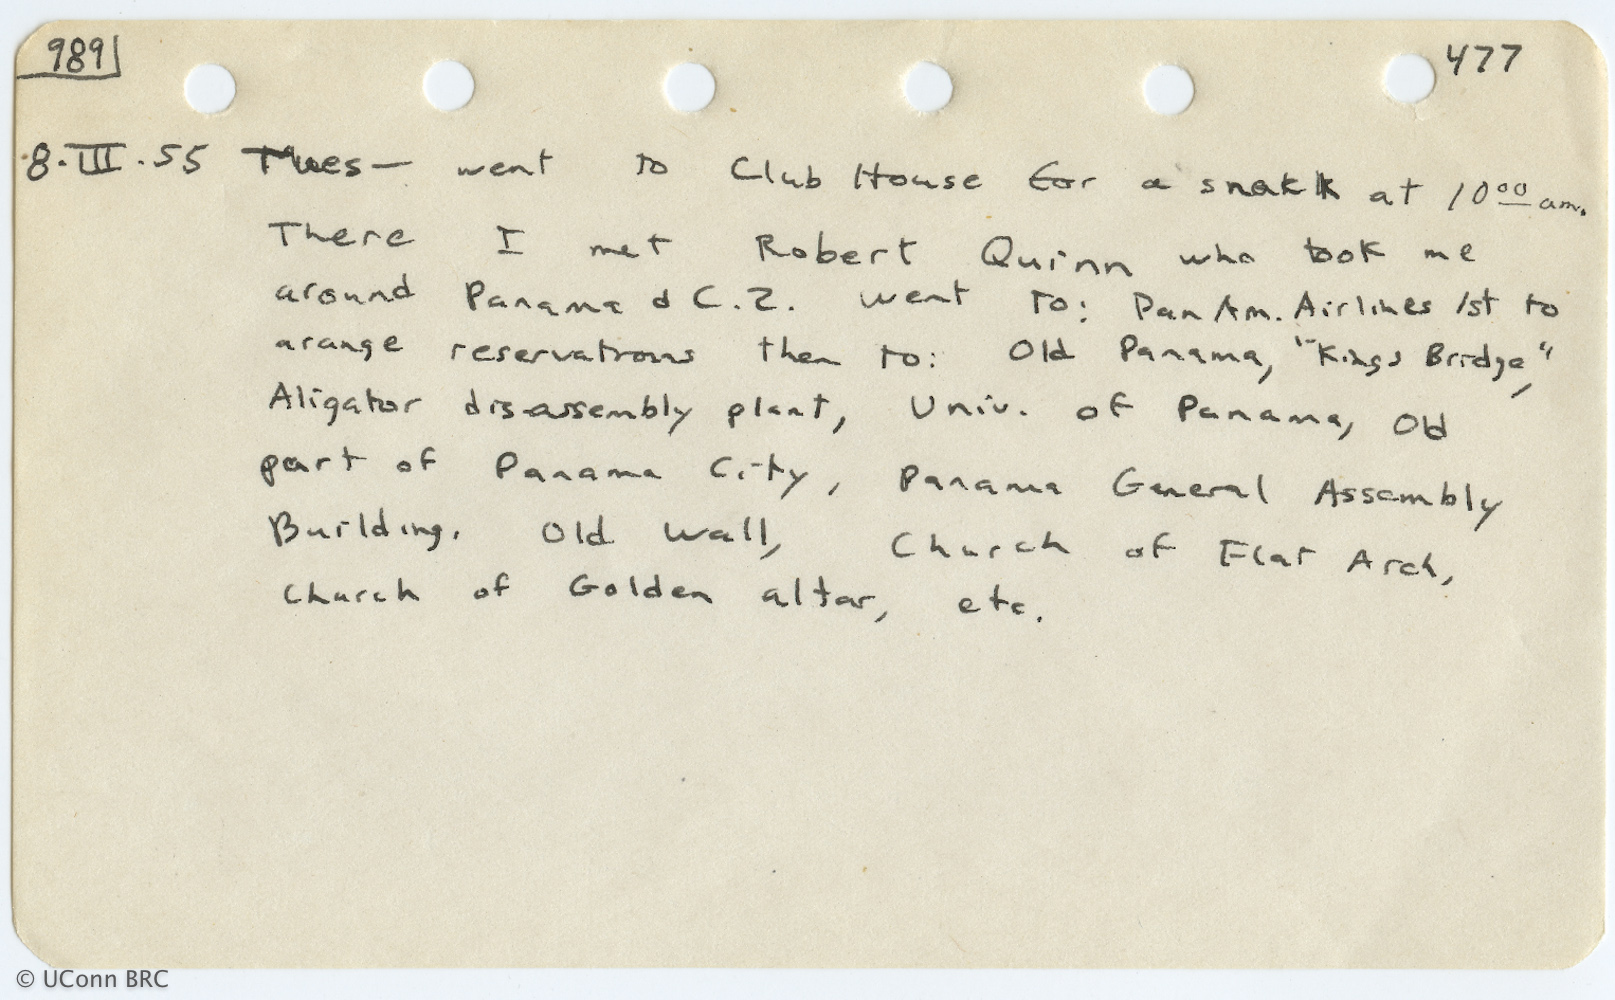 989 477
8.III.55 Tues— went to Club House for a snakk at 10⁰⁰ am.
There I met Robert Quinn who took me
around Panama & C.Z. went to: Pan Am. Airlines 1st to
arange reservations then to: Old Panama, "Kings Bridge,"
Aligator disassembly plant, Univ. of Panama, Old
part of Panama City, Panama General Assembly
Building. Old Wall, Church of Flat Arch,
Church of Golden altar, etc.
© UConn BRC